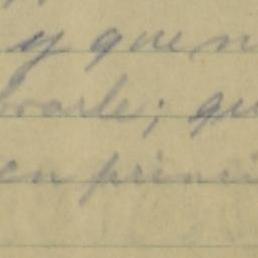 y que n
barle; qu
en princi